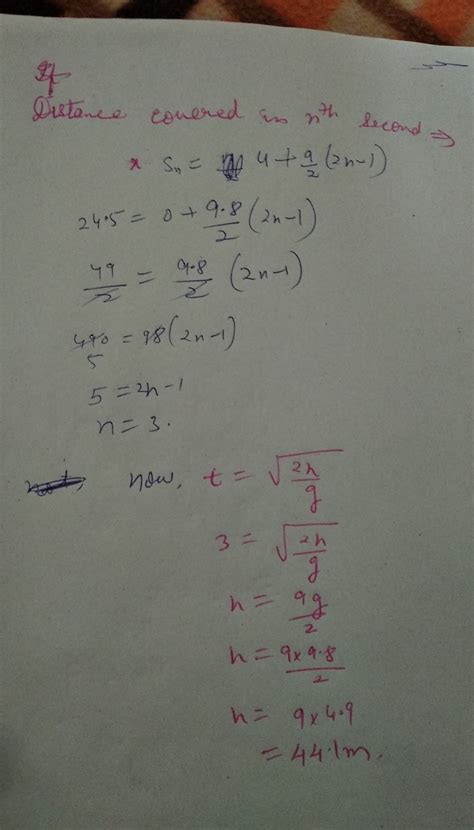 If
Distance covered in nth second ⇒
* Sn = u + a/2 (2n-1)
24.5 = 0 + 9.8/2 (2n-1)
49/2 = 9.8/2 (2n-1)
490 = 98(2n-1)
5
5 = 2n-1
n = 3.
now, t = √(2h/g)
3 = √(2h/g)
h = 9g/2
h = 9×9.8/2
h = 9×4.9
= 44.1m.